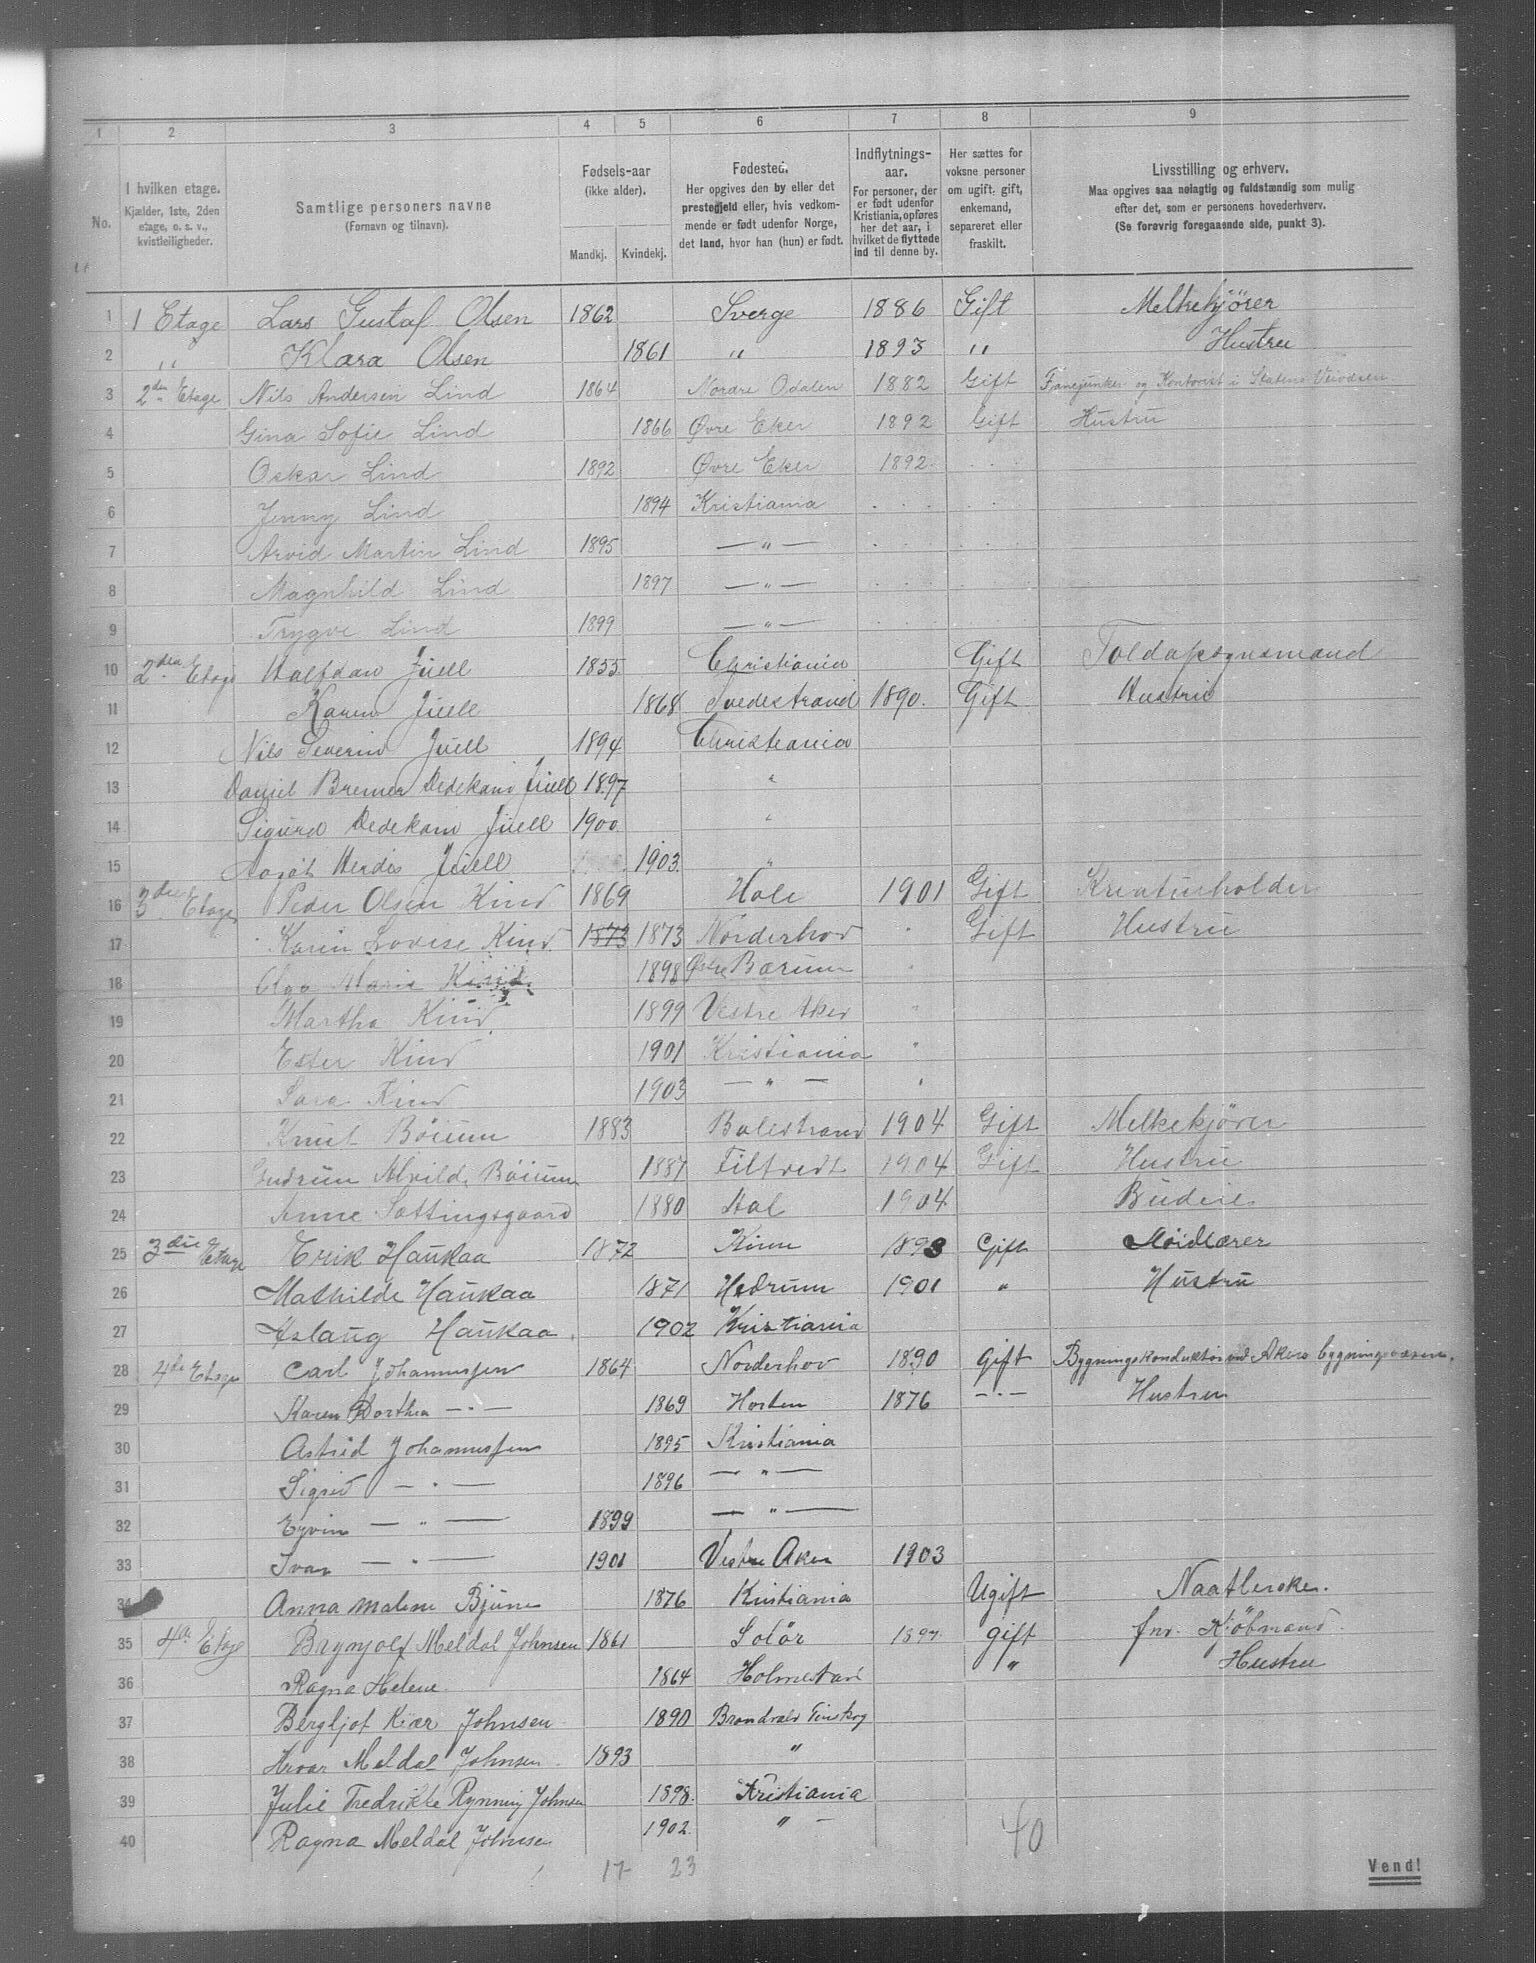 1 2 3 4 5 6 7 8 9
No.
I hvilken etage. Kjælder, 1ste, 2den etage, o. s. v., kvistleiligheder.
Samtlige personers navne (Fornavn og tilnavn).
Fødsels-aar (ikke alder). Mandkj. Kvindekj.
Fødested. Her opgives den by eller det prestegjeld eller, hvis vedkommende er født udenfor Norge, det land, hvor han (hun) er født.
Indflytnings-aar. For personer, der er født udenfor Kristiania, opføres her det aar, i hvilket de flyttede ind til denne by.
Her sættes for voksne personer om ugift, gift, enkemand, separeret eller fraskilt.
Livsstilling og erhverv. Maa opgives saa nøiagtig og fuldstændig som mulig efter det, som er personens hovederhverv. (Se forøvrig foregaaende side, punkt 3).
1 1 Etage Lars Gustaf Olsen 1862 Sverge 1886 Gift Melkekjörer
2 " Klara Olsen 1861 " 1893 " Hustru
3 2den Etage Nils Andersen Lind 1864 Nordre Odalen 1882 Gift Fanejunker og Kontorist i Statens Veivæsen
4 Gina Sofie Lind 1866 Øvre Eker 1892 Gift Hustru
5 Oskar Lind 1892 Øvre Eker 1892
6 Jenny Lind 1894 Kristiania
7 Arvid Martin Lind 1895 — " —
8 Magnhild Lind 1897 — " —
9 Trygve Lind 1899 — " —
10 2den Etage Halfdan Juell 1855 Christiania Gift Toldopsynsmand
11 Karen Juell 1868 Tvedestrand 1890. Gift Hustru
12 Nils Severin Juell 1894 Christiania
13 Daniel Bremer Dedekam Juell 1897 "
14 Sigurd Dedekam Juell 1900 "
15 Herdis Juell 1903. "
16 3die Etage Peder Olsen Kind 1869 Hole 1901 Gift Kreaturholder
17 Karin Lovise Kind 1873 1873 Norderhov " Gift Hustru
18 Olga Marie Kind 1898 Østre Bærum "
19 Martha Kind 1899 Vestre Aker "
20 Ester Kind 1901 Kristiania "
21 Sara Kind 1903 — " — "
22 Knut Böium 1883 Balestrand 1904 Gift Melkekjörer
23 Gudrun Alvild. Böium 1887 1904 Gift Hustru
24 Anne Sattingsgaard 1880 1904 Budeie
25 3die Etage Erik Haukaa 1872 Kinn 1893 Gift Slöidlærer
26 Mathilde Haukaa 1871 Hedrum 1901 " Hustru
27 Aslaug Haukaa 1902 Kristiania
28 4de Etage Carl Johannessen 1864 Norderhov 1890 Gift Bygningskonduktör ved Akers bygningsvæsen.
29 Karen Dorthea — " — 1869 Horten 1876 — " — Hustru
30 Astrid Johannessen 1895 Kristiania
31 Sigrid — " — 1896 — " —
32 Eyvin — " — 1899 — " —
33 Ivar — " — 1901 Vestre Aker 1903
34 Anna Malene Bjune 1876 Kristiania Ugift Naatlerske.
35 4de Etage Brynjolf Meldal Johnsen 1861 Solör 1897. gift fnv. Kjöbmand.
36 Ragna Helene 1864 Holmestrand " Hustru
37 Bergljot Kiær Johnsen 1890 Brandvald Finskog
38 Hroar Meldal Johnsen 1893 "
39 Julie Fredrikke Rynning Johnsen 1898. Kristiania
40 Ragna Meldal Johnsen 1902. " —
17 23 40
Vend!